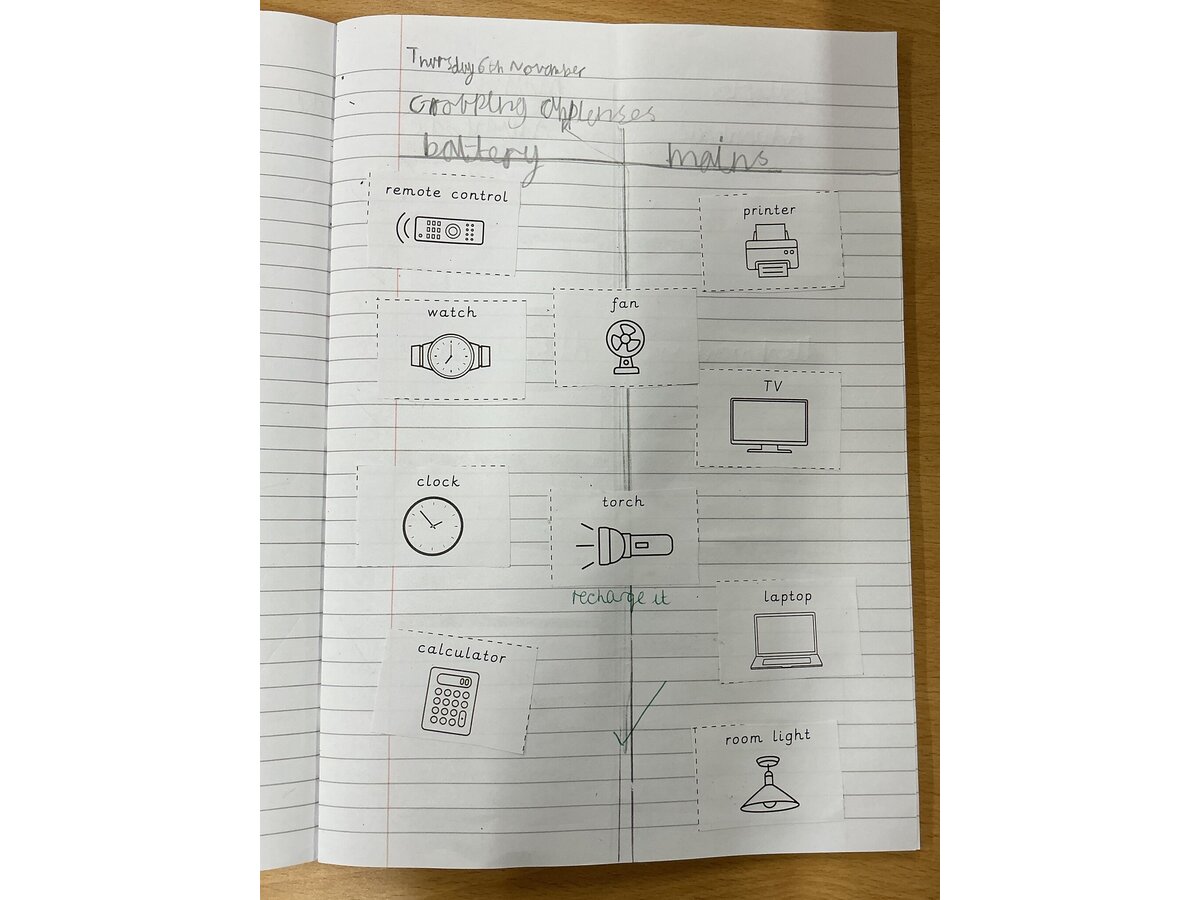 Thursday 6th November
Grouping applenses
battery mains
remote control
printer
watch
fan
TV
clock
torch
recharge it
laptop
calculator
00
room light